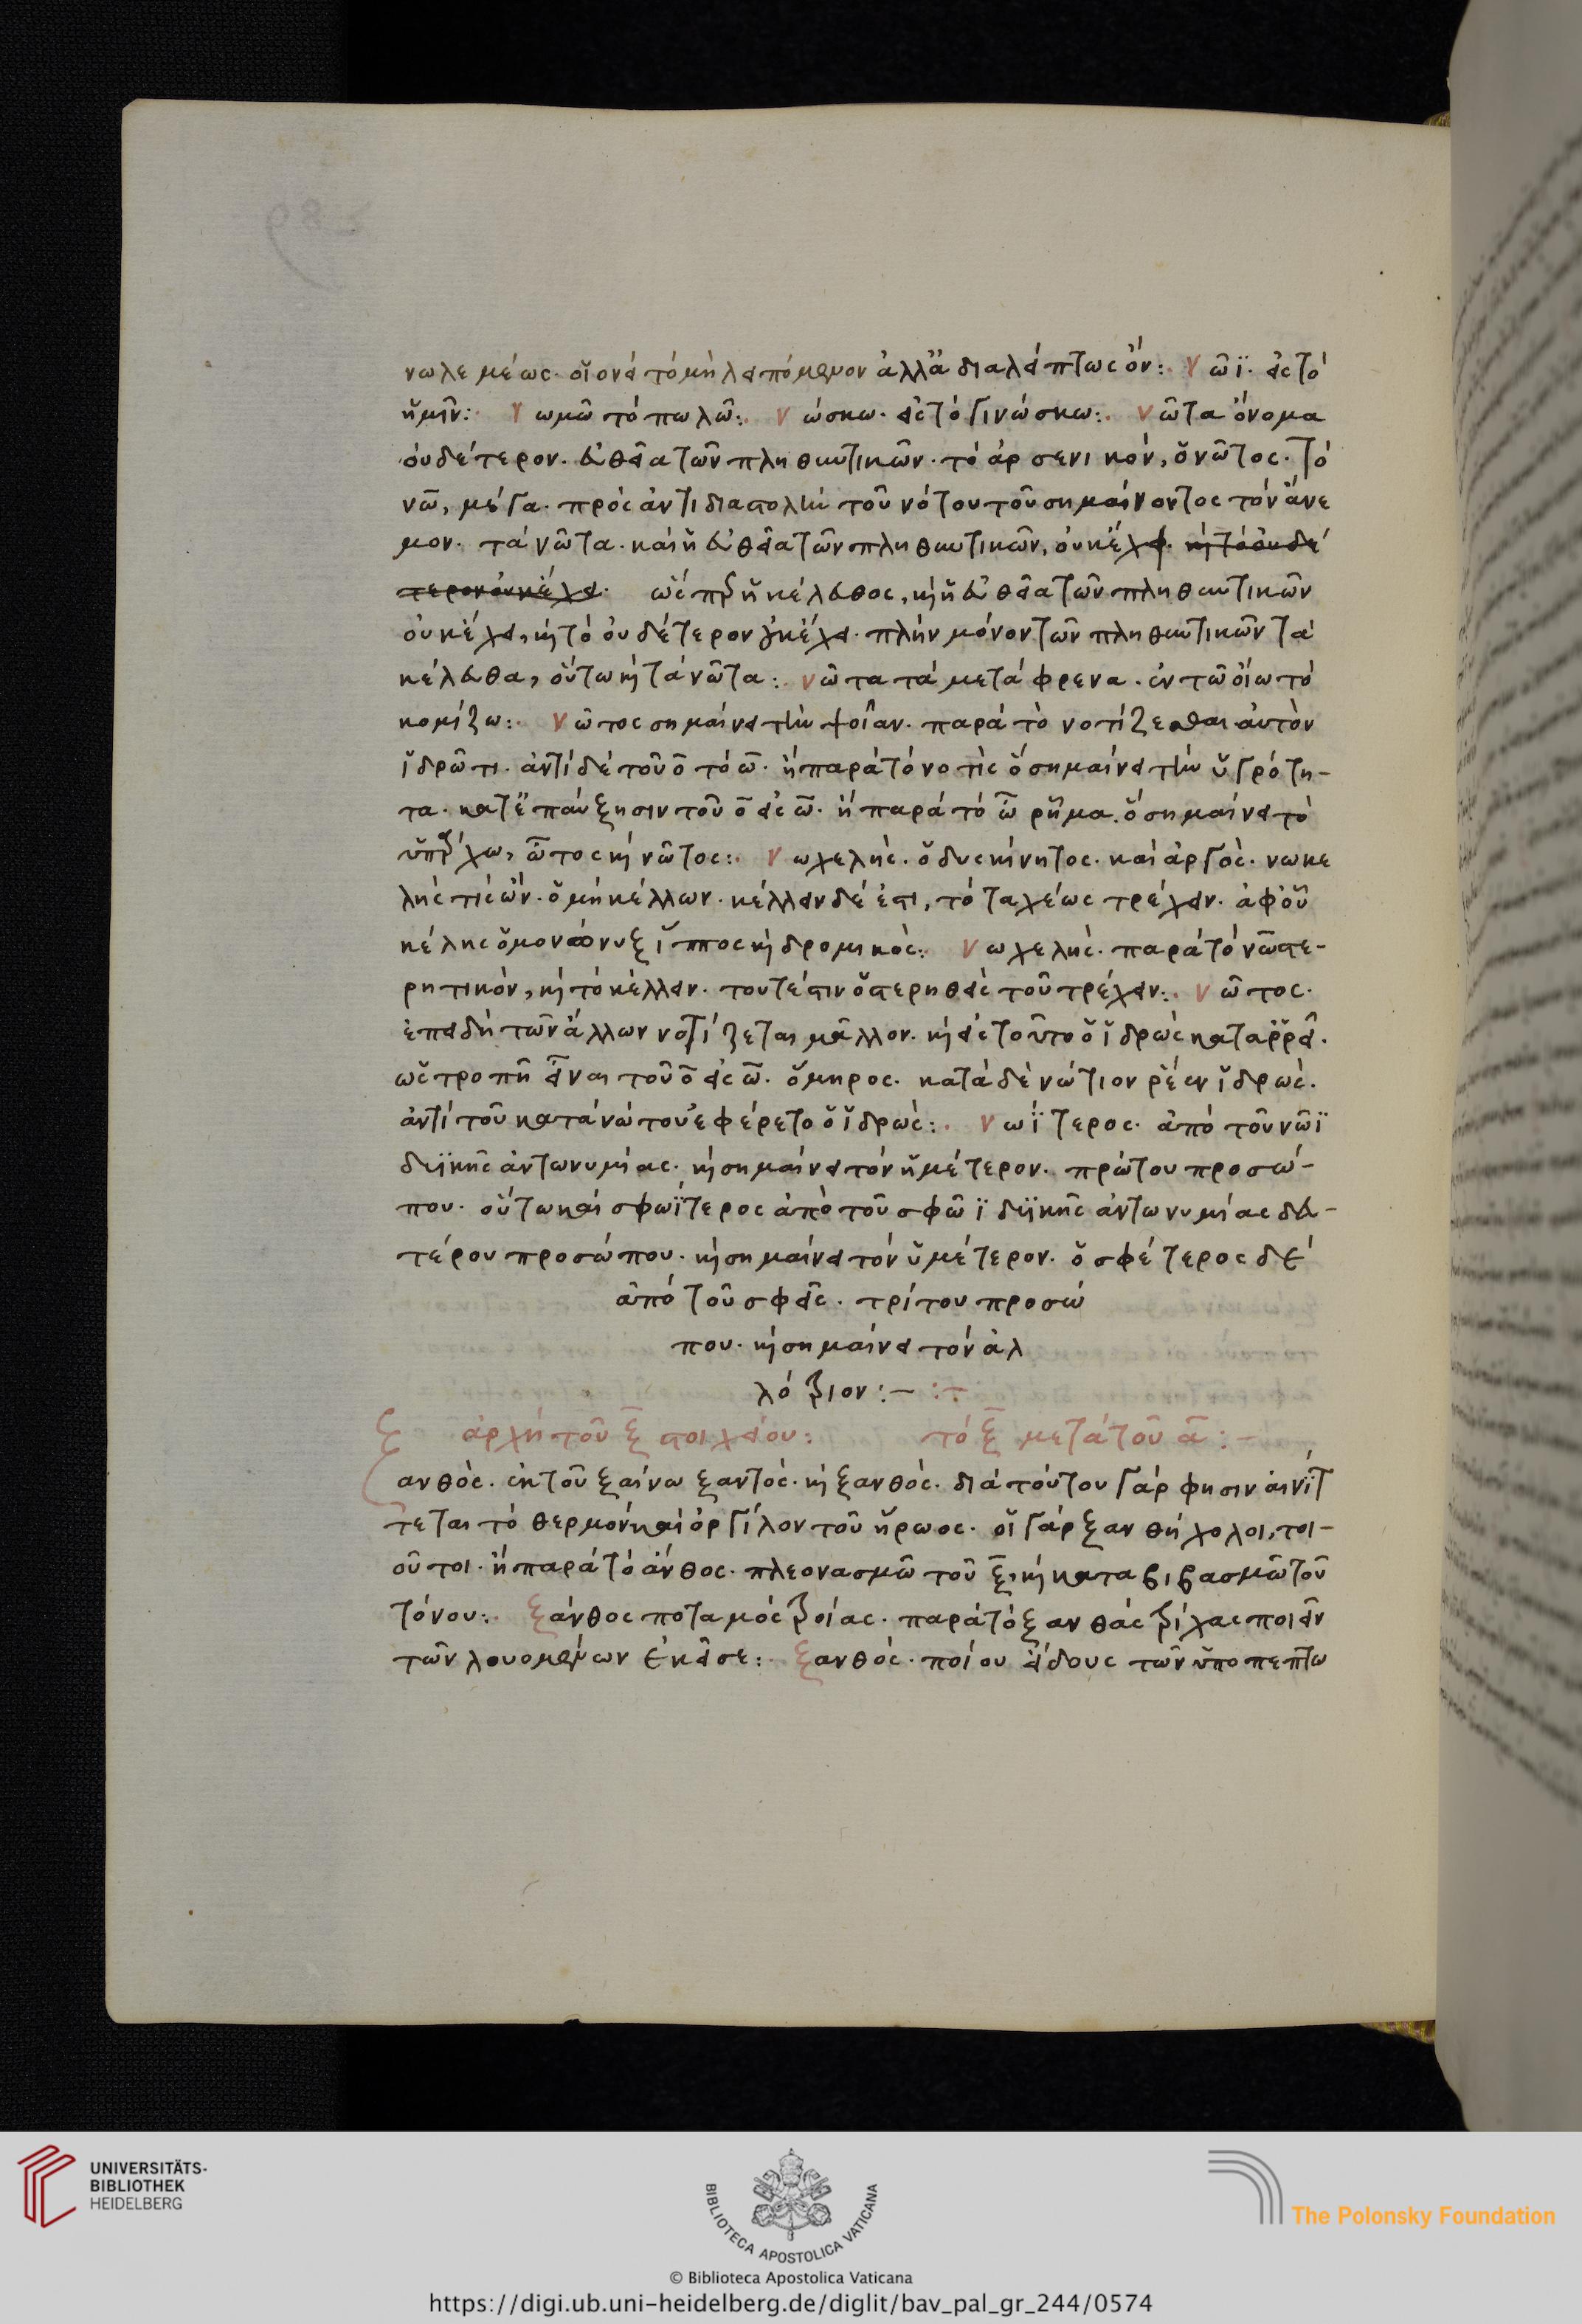 νωλεμέως· οἱονεὶ τὸ μὴ λειπόμενον ἀλλὰ ἀδιαλείπτως ὄν: νῶϊ· εἰς τὸ
ἡμῖν: νωμῶ τὸ πωλῶ: νώσκω· εἰς τὸ γινώσκω: νῶτα ὄνομα
οὐδέτερον. εὐθεῖα τῶν πληθυντικῶν· τὸ ἀρσενικόν, ὁ νῶτος· τὸ
νω̅, μέγα· πρὸς ἀντιδιαστολὴν τοῦ νότου τοῦ σημαίνοντος τὸν ἄνε
μον· τὰ νῶτα· καὶ ἡ εὐθεῖα τῶν πληθυντικῶν, οὐκ ἔχει. καὶ τὸ οὐδέ
τερον οὐκ ἔχει. ὥσπερ ἡ κέλευθος, καὶ ἡ εὐθεῖα τῶν πληθυντικῶν
οὐκ ἔχει, καὶ τὸ οὐδέτερον οὐκ ἔχει· πλὴν μόνον τῶν πληθυντικῶν τὰ
κέλευθα, οὕτω καὶ τὰ νῶτα: νῶτα τὰ μετάφρενα· ἐν τῶ οἴω τὸ
κομίζω: νῶτος σημαίνει τὴν ψοίαν· παρὰ τὸ νοτίζεσθαι αὐτὸν
ἱδρῶτι· ἀντὶ δὲ τοῦ ο̅ τὸ ω̅· ἢ παρὰ τὸ νοτὶς ὃ σημαίνει τὴν ὑγρότη-
τα· κατ' ἐπαύξησιν τοῦ ο̅ εἰς ω̅· ἢ παρὰ τὸ ω̅ ῥῆμα. ὃ σημαίνει τὸ
ὑπερέχω, ὦτος καὶ νῶτος: νωχελής· ὁ δυσκίνητος· καὶ ἀργός· νωκε
λής τίς ὤν· ὁ μὴ κέλλων· κέλλειν δέ ἐστι, τὸ ταχέως τρέχειν· ἀφ' οὗ
κέλης ὁ μονάονυξ ἵππος καὶ δρομικός: νωχελής· παρὰ τὸ νω̅ στε-
ρητικόν, καὶ τὸ κέλλειν· τουτέστιν ὁ στερηθεὶς τοῦ τρέχειν: νῶτος·
ἐπειδὴ τῶν ἄλλων νοτίζεται μᾶλλον· καὶ εἰς τοῦτο ὁ ἱδρὼς καταῤῥεῖ·
ὡς τροπὴ εἶναι τοῦ ο̅ εἰς ω̅· ὅμηρος· κατὰ δὲ νώτιον ῥέεν ἱδρώς·
ἀντὶ τοῦ κατὰ νώτου ἐφέρετο ὁ ἱδρώς: νωΐτερος· ἀπὸ τοῦ νῶϊ
δυϊκῆς ἀντωνυμίας· καὶ σημαίνει τὸν ἡμέτερον· πρώτου προσώ-
που· οὕτω καὶ σφωΐτερος ἀπὸ τοῦ σφῶϊ δυϊκῆς ἀντωνυμίας δευ-
τέρου προσώπου· καὶ σημαίνει τὸν ὑμέτερον· ὁ σφέτερος δὲ
ἀπὸ τοῦ σφεῖς· τρίτου προσώ
που· καὶ σημαίνει τὸν ἀλ
λότριον:–
ἀρχὴ τοῦ ξ̅ στοιχείου: τὸ ξ̅ μετὰ τοῦ α̅:–
ξανθός· ἐκ τοῦ ξαίνω ξαντός· καὶ ξανθός· διὰ τούτου γάρ φησιν αἰνίτ
τεται τὸ θερμὸν καὶ ὀργίλον τοῦ ἥρωος· οἱ γὰρ ξανθήχολοι, τοι-
οῦτοι· ἢ παρὰ τὸ ἄνθος· πλεονασμῶ τοῦ ξ̅, καὶ καταβιβασμῶ τοῦ
τόνου: ξάνθος ποταμὸς τροίας· παρὰ τὸ ξανθὰς τρίχας ποιεῖν
τῶν λουομένων ἐκεῖσε: ξανθός· ποίου εἴδους τῶν ὑποπεπτω
UNIVERSITÄTS-
BIBLIOTHEK
HEIDELBERG
BIBLIOTECA APOSTOLICA VATICANA
The Polonsky Foundation
© Biblioteca Apostolica Vaticana
https://digi.ub.uni-heidelberg.de/diglit/bav_pal_gr_244/0574